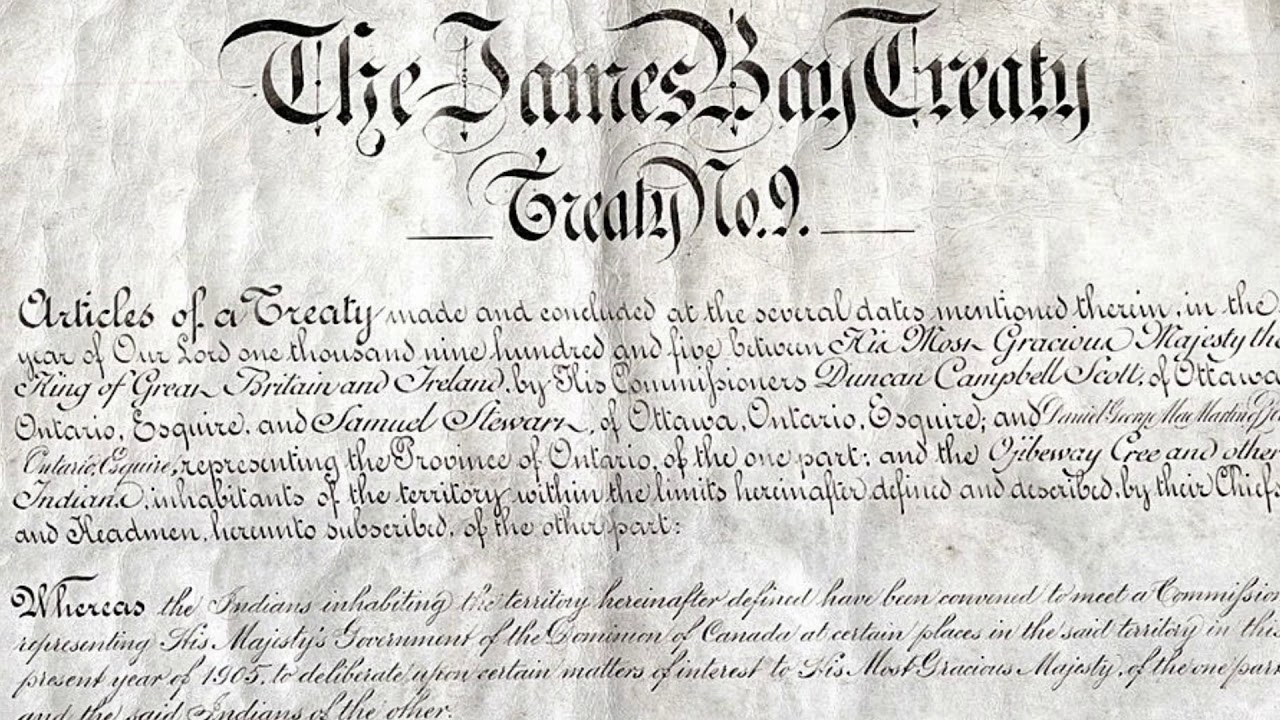 The James Bay Treaty
Treaty No. 9.
Articles of a Treaty made and concluded at the several dates mentioned therein, in the
year of Our Lord one thousand nine hundred and five between His Most Gracious Majesty the
King of Great Britain and Ireland, by His Commissioners Duncan Campbell Scott, of Ottawa
Ontario, Esquire, and Samuel Stewart, of Ottawa, Ontario, Esquire; and Daniel George MacMartin of
Ontario, Esquire, representing the Province of Ontario, of the one part; and the Ojibeway Cree and other
Indians, inhabitants of the territory within the limits hereinafter defined and described, by their Chiefs
and Headmen, hereunto subscribed, of the other part:
Whereas the Indians inhabiting the territory hereinafter defined have been convened to meet a Commission
representing His Majesty's Government of the Dominion of Canada at certain places in the said territory in this
present year of 1905, to deliberate upon certain matters of interest to His Most Gracious Majesty, of the one part
and the said Indians of the other.